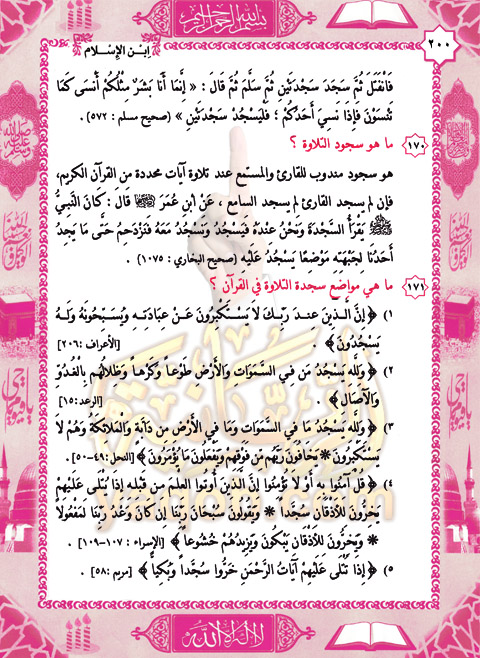 بسم الله الرحمن الرحيم
٢٠٠
ابن الإسلام
فَانْفَتَلَ ثُمَّ سَجَدَ سَجْدَتَيْنِ ثُمَّ سَلَّمَ ثُمَّ قَالَ : « إِنَّمَا أَنَا بَشَرٌ مِثْلُكُمْ أَنْسَى كَمَا
تَنْسَوْنَ فَإِذَا نَسِيَ أَحَدُكُمْ ؛ فَلْيَسْجُدْ سَجْدَتَيْنِ » (صحيح مسلم : ٥٧٢) .
١٧٠ ما هو سجود التلاوة ؟
هو سجود مندوب للقارئ والمستمع عند تلاوة آيات محددة من القرآن الكريم،
فإن لم يسجد القارئ لم يسجد السامع ، عَنْ ابْنِ عُمَرَ قَالَ : كَانَ النَّبِيُّ
ﷺ يَقْرَأُ السَّجْدَةَ وَنَحْنُ عِنْدَهُ فَيَسْجُدُ وَنَسْجُدُ مَعَهُ فَنَزْدَحِمُ حَتَّى مَا يَجِدُ
أَحَدُنَا لِجَبْهَتِهِ مَوْضِعًا يَسْجُدُ عَلَيْهِ (صحيح البخاري : ١٠٧٥) .
١٧١ ما هي مواضع سجدة التلاوة في القرآن ؟
١) ﴿ إِنَّ الَّذِينَ عِندَ رَبِّكَ لَا يَسْتَكْبِرُونَ عَنْ عِبَادَتِهِ وَيُسَبِّحُونَهُ وَلَهُ
يَسْجُدُونَ ﴾ . [الأعراف :٢٠٦]
٢) ﴿ وَلِلَّهِ يَسْجُدُ مَن فِي السَّمَوَاتِ وَالْأَرْضِ طَوْعاً وَكَرْهاً وَظِلَالُهُم بِالْغُدُوِّ
وَالْآصَالِ ﴾ . [الرعد:١٥]
٣) ﴿ وَلِلَّهِ يَسْجُدُ مَا فِي السَّمَوَاتِ وَمَا فِي الْأَرْضِ مِن دَآبَّةٍ وَالْمَلَائِكَةُ وَهُمْ لَا
يَسْتَكْبِرُونَ * يَخَافُونَ رَبَّهُم مِّن فَوْقِهِمْ وَيَفْعَلُونَ مَا يُؤْمَرُونَ ﴾ [النحل:٤٩-٥٠] .
٤) ﴿ قُلْ آمِنُوا بِهِ أَوْ لَا تُؤْمِنُوا إِنَّ الَّذِينَ أُوتُوا الْعِلْمَ مِن قَبْلِهِ إِذَا يُتْلَى عَلَيْهِمْ
يَخِرُّونَ لِلْأَذْقَانِ سُجَّداً * وَيَقُولُونَ سُبْحَانَ رَبِّنَا إِن كَانَ وَعْدُ رَبِّنَا لَمَفْعُولًا
* وَيَخِرُّونَ لِلْأَذْقَانِ يَبْكُونَ وَيَزِيدُهُمْ خُشُوعاً ﴾ [الإسراء : ١٠٧-١٠٩] .
٥) ﴿ إِذَا تُتْلَى عَلَيْهِمْ آيَاتُ الرَّحْمَنِ خَرُّوا سُجَّداً وَبُكِيّاً ﴾ [مريم :٥٨] .
لا إله إلا الله